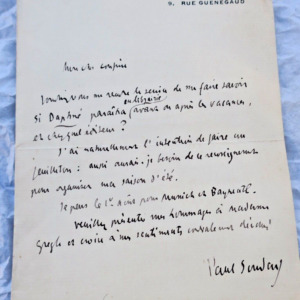 9, RUE GUÉNÉGAUD
Mon cher confrère
Voudriez-vous me rendre le service de me faire savoir
en librairie
si Daphné paraîtra avant ou après les vacances,
et chez quel éditeur ?
J'ai naturellement l'intention de faire un
feuilleton : aussi aurais-je besoin de ce renseignement
pour organiser ma saison d'été.
Je pars le 1er août pour Munich et Bayreuth.
Veuillez présenter mes hommages à madame
Gregh et croire à mes sentiments cordialement dévoués
Paul Souday